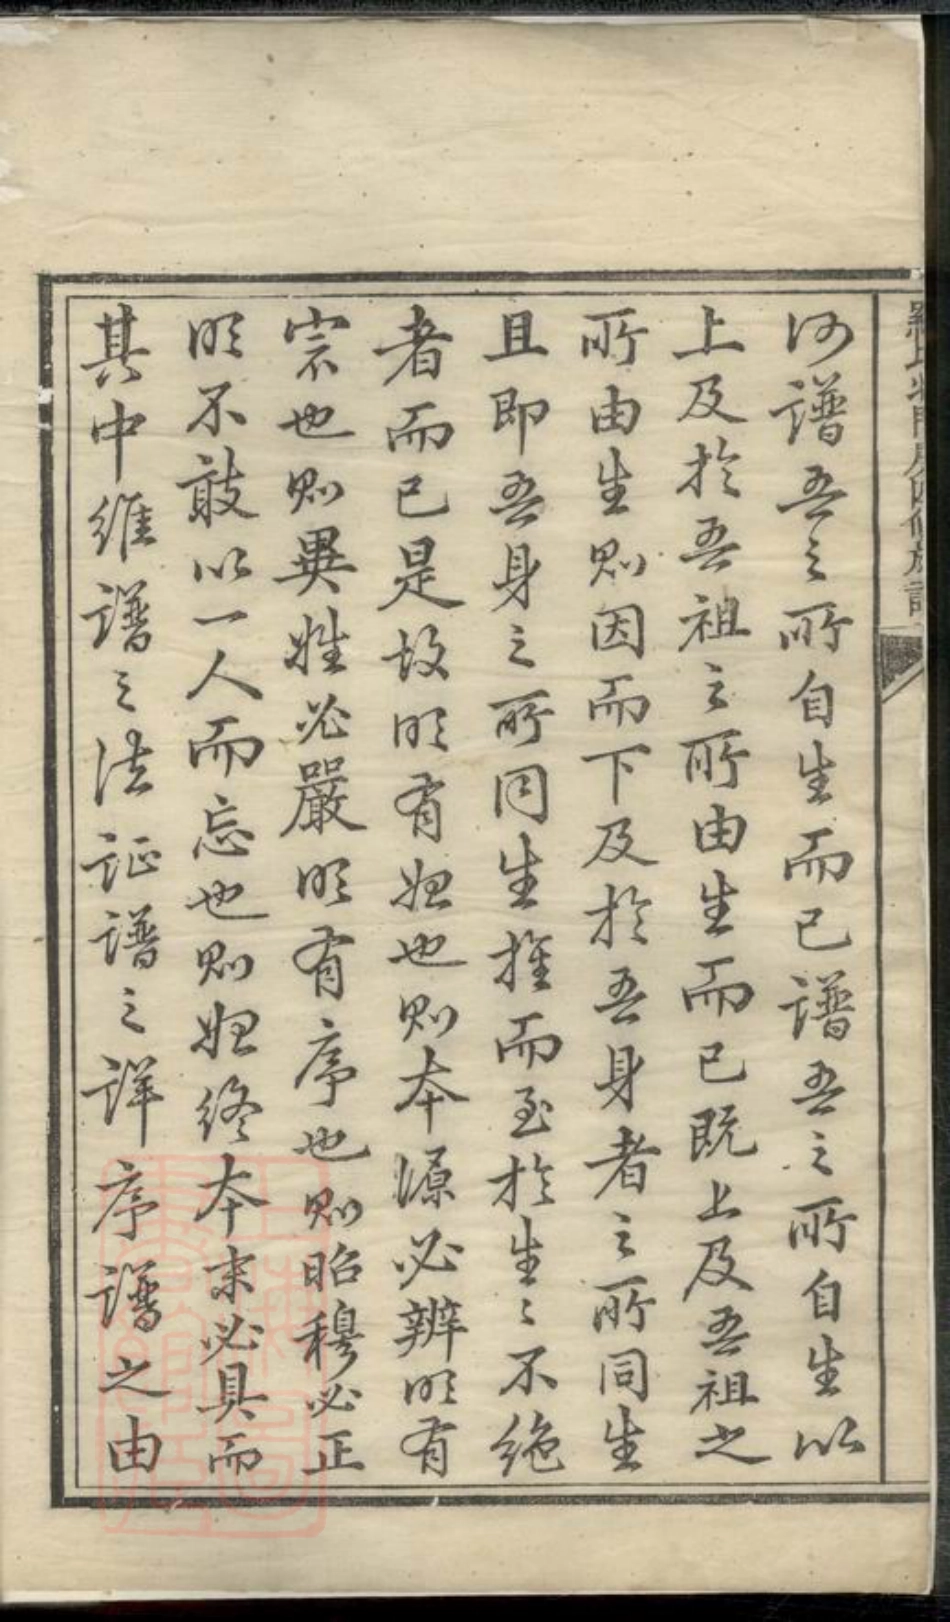 何譜吾之所自生而已譜吾之所自生以
上及於吾祖之所由生而已既上及吾祖之
所由生則因而下及於吾身者之所同生
且即吾身之所同生推而至於生〻不絶
者而已是故明有始也則本源必辨明有
宗也則異姓必嚴明有序也則昭穆必正
明不敢以一人而忘也則始終本末必具而
其中維譜之法証譜之詳序譜之由